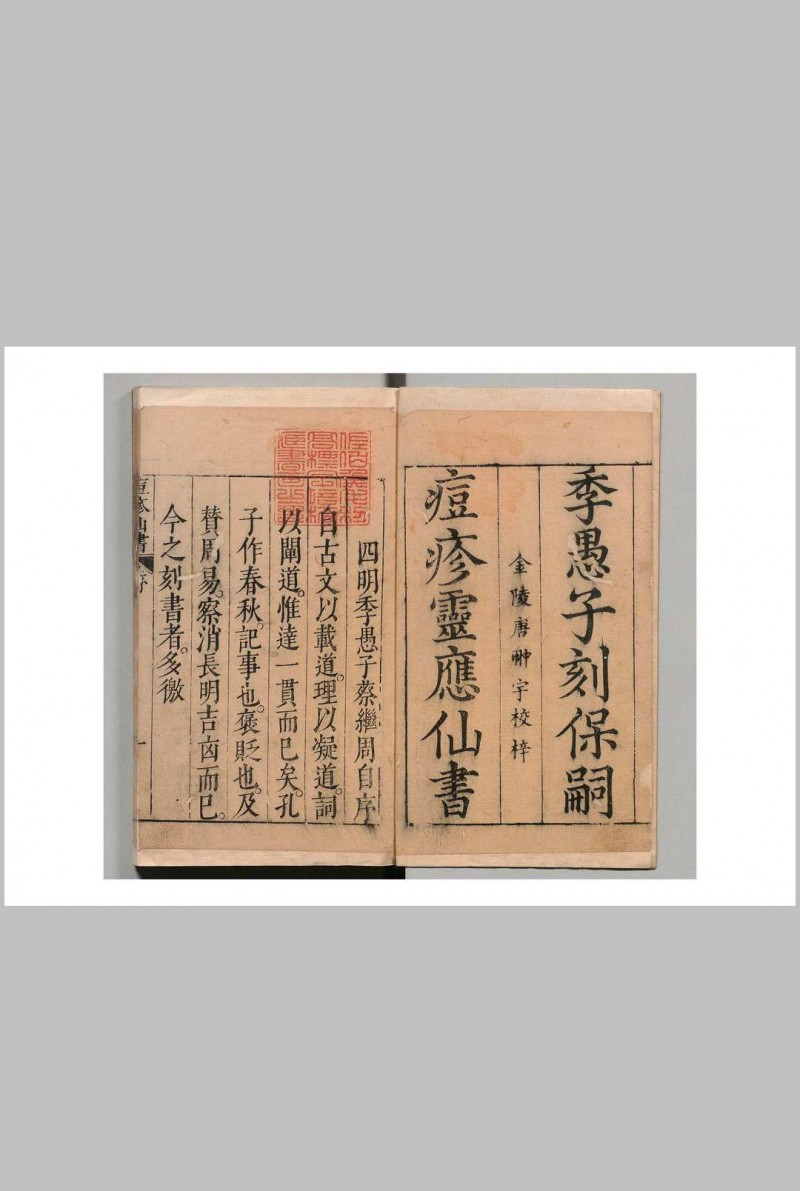 季愚子刻保嗣
金陵唐翀宇校梓
痘疹靈應仙書
四明季愚子蔡繼周自序
自古文以載道。理以凝道。詞
以闡道。惟達一貫而已矣。孔
子作春秋。記事也。褒貶也。及
賛周易。察消長明吉凶而已。
今之刻書者。多徼
痘疹仙書
序
一